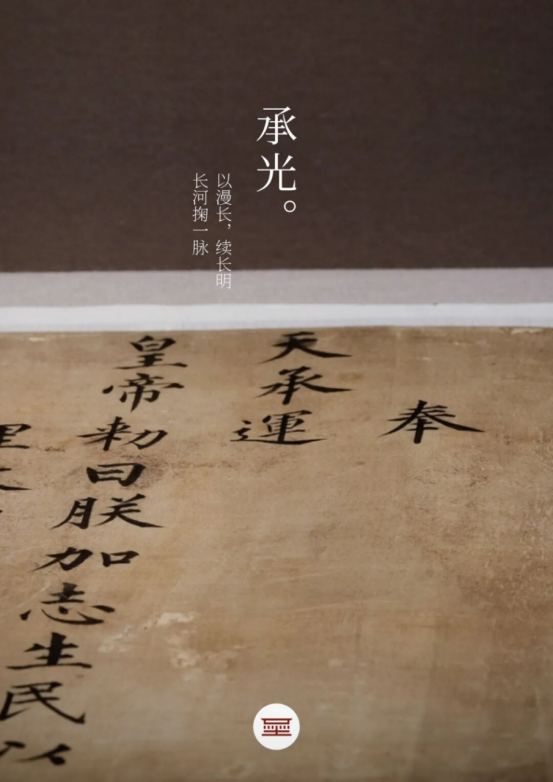 承光。
以漫长，续长明
长河掬一脉
奉
天承運
皇帝勅曰朕加志生民以